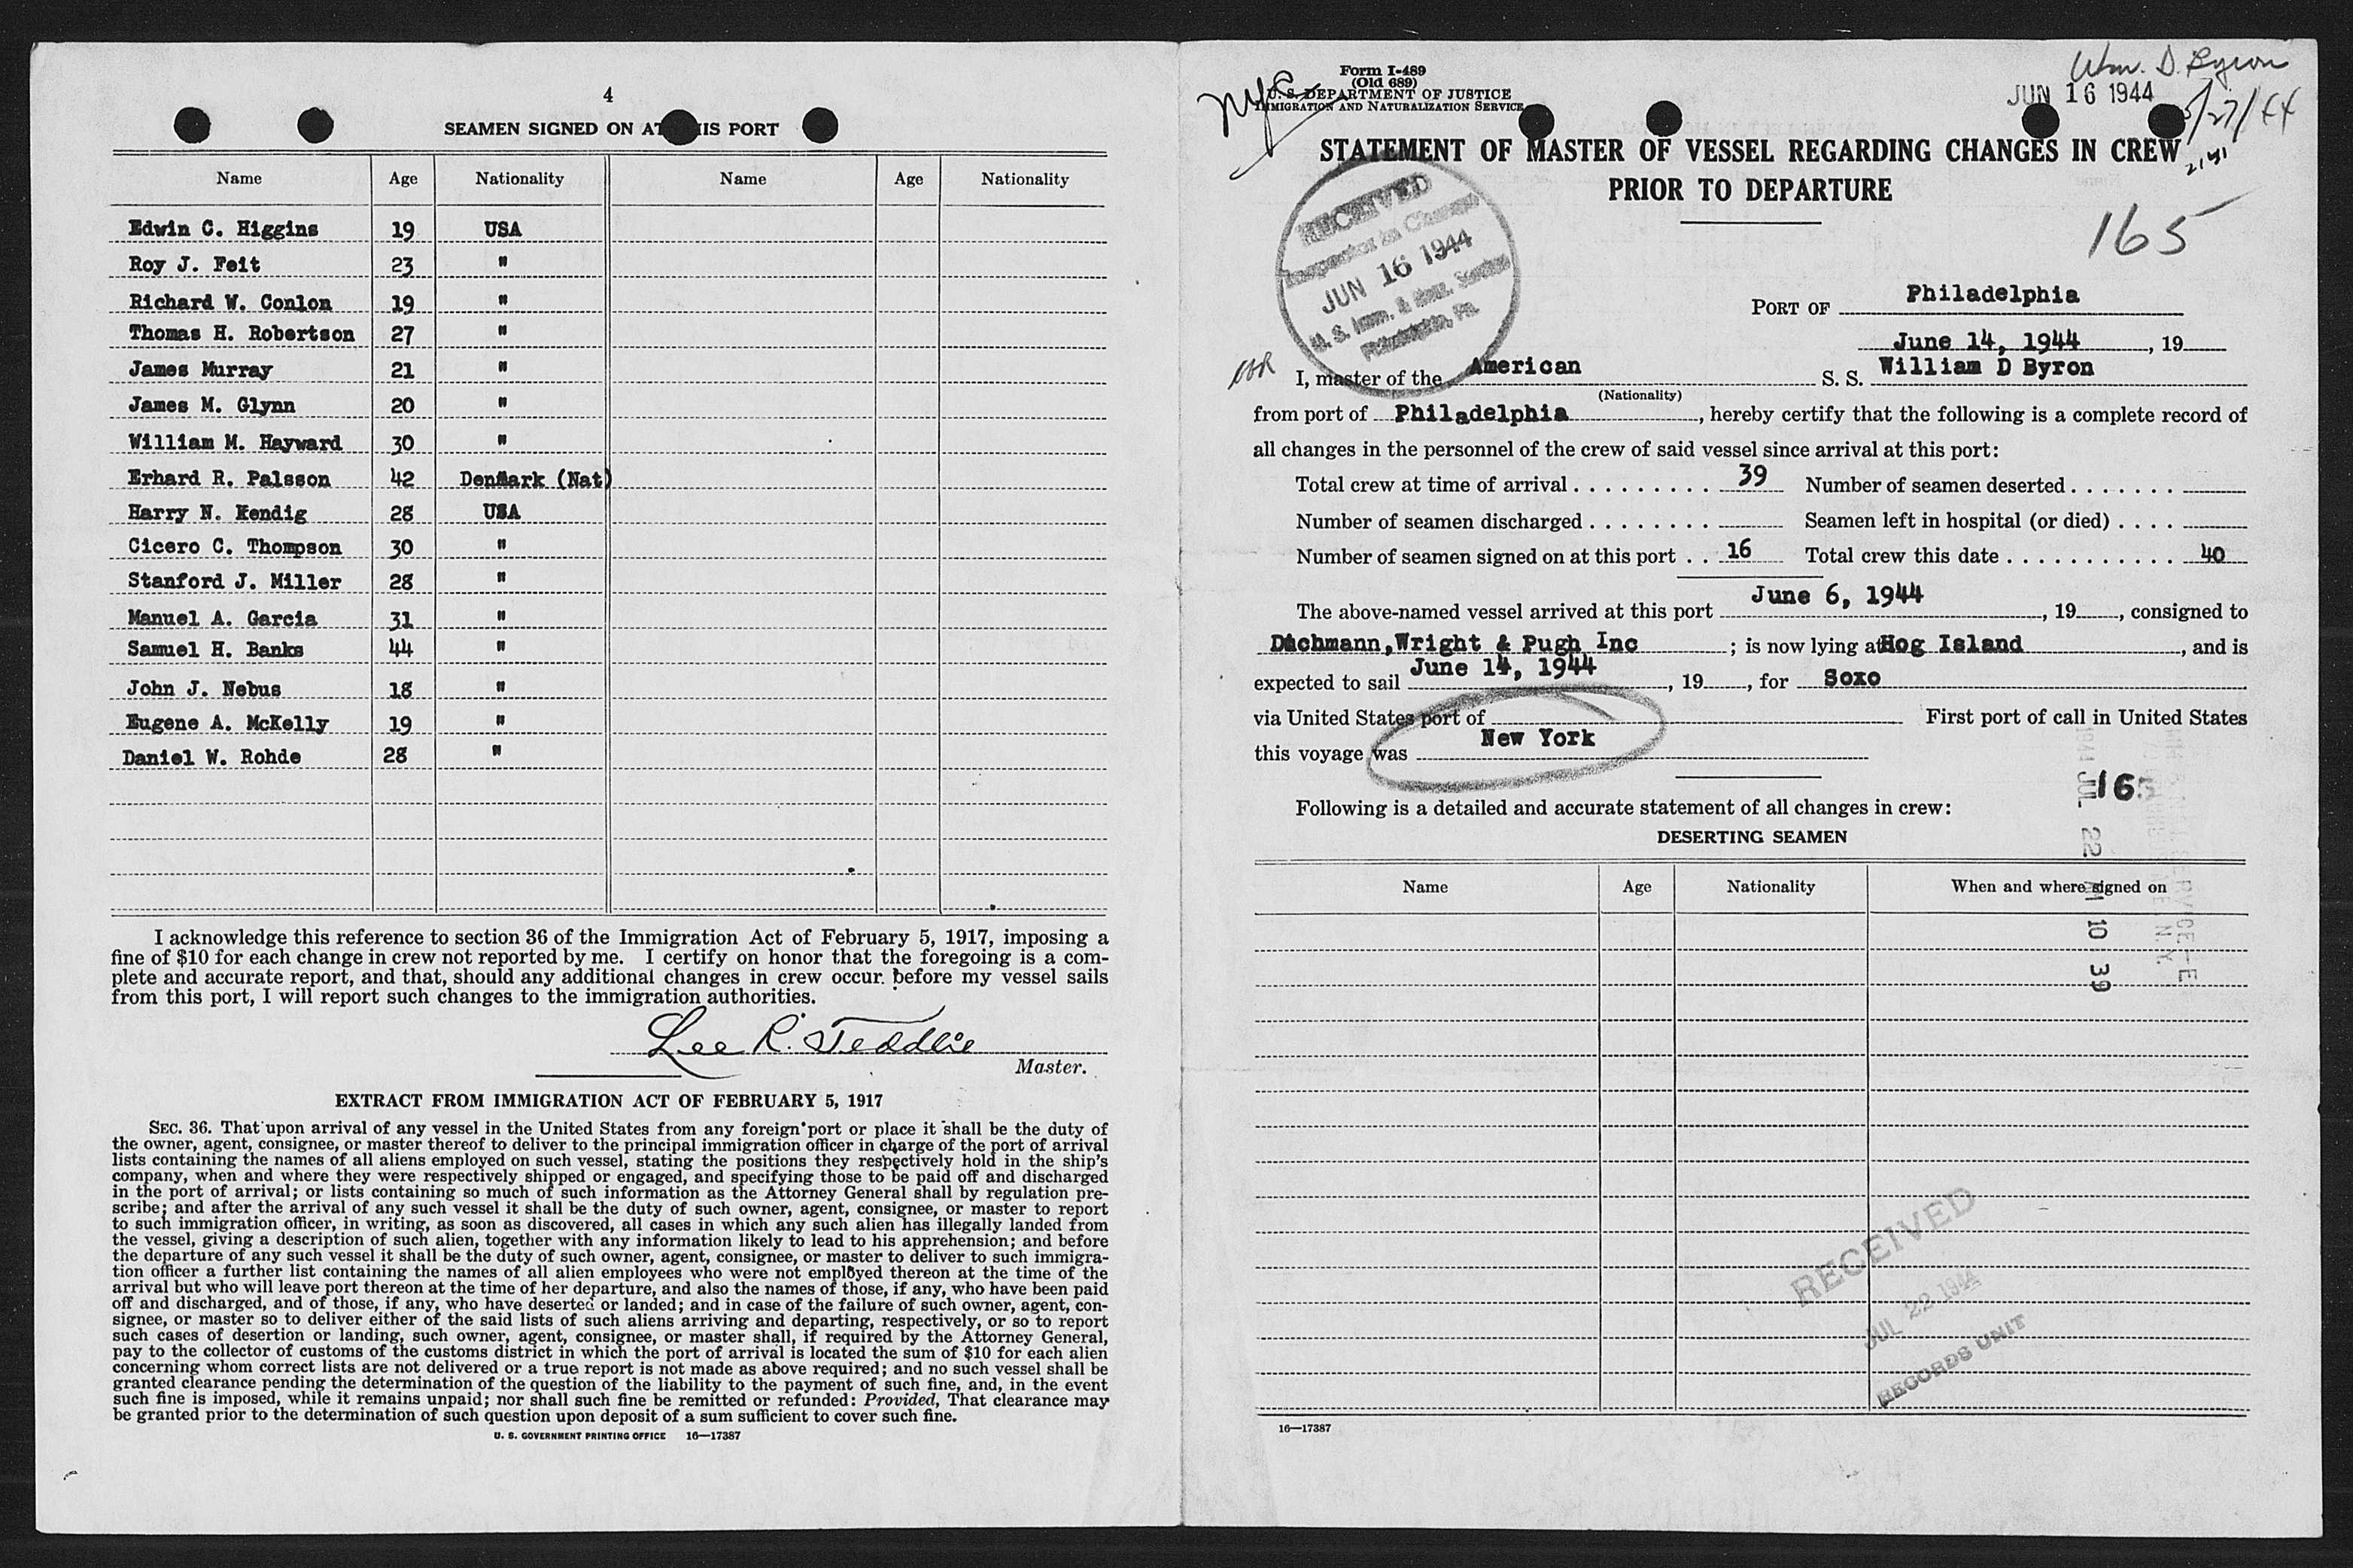 4
SEAMEN SIGNED ON AT THIS PORT
Name Age Nationality Name Age Nationality
Edwin C. Higgins 19 USA
Roy J. Feit 23 "
Richard W. Conlon 19 "
Thomas H. Robertson 27 "
James Murray 21 "
James M. Glynn 20 "
William M. Hayward 30 "
Erhard R. Palsson 42 Denmark (Nat)
Harry N. Kendig 28 USA
Cicero C. Thompson 30 "
Stanford J. Miller 28 "
Manuel A. Garcia 31 "
Samuel H. Banks 44 "
John J. Nebus 18 "
Eugene A. McKelly 19 "
Daniel W. Rohde 28 "
I acknowledge this reference to section 36 of the Immigration Act of February 5, 1917, imposing a
fine of $10 for each change in crew not reported by me. I certify on honor that the foregoing is a com-
plete and accurate report, and that, should any additional changes in crew occur before my vessel sails
from this port, I will report such changes to the immigration authorities.
Lee R. Teddlie
Master.
EXTRACT FROM IMMIGRATION ACT OF FEBRUARY 5, 1917
SEC. 36. That upon arrival of any vessel in the United States from any foreign port or place it shall be the duty of
the owner, agent, consignee, or master thereof to deliver to the principal immigration officer in charge of the port of arrival
lists containing the names of all aliens employed on such vessel, stating the positions they respectively hold in the ship's
company, when and where they were respectively shipped or engaged, and specifying those to be paid off and discharged
in the port of arrival; or lists containing so much of such information as the Attorney General shall by regulation pre-
scribe; and after the arrival of any such vessel it shall be the duty of such owner, agent, consignee, or master to report
to such immigration officer, in writing, as soon as discovered, all cases in which any such alien has illegally landed from
the vessel, giving a description of such alien, together with any information likely to lead to his apprehension; and before
the departure of any such vessel it shall be the duty of such owner, agent, consignee, or master to deliver to such immigra-
tion officer a further list containing the names of all alien employees who were not employed thereon at the time of the
arrival but who will leave port thereon at the time of her departure, and also the names of those, if any, who have been paid
off and discharged, and of those, if any, who have deserted or landed; and in case of the failure of such owner, agent, con-
signee, or master so to deliver either of the said lists of such aliens arriving and departing, respectively, or so to report
such cases of desertion or landing, such owner, agent, consignee, or master shall, if required by the Attorney General,
pay to the collector of customs of the customs district in which the port of arrival is located the sum of $10 for each alien
concerning whom correct lists are not delivered or a true report is not made as above required; and no such vessel shall be
granted clearance pending the determination of the question of the liability to the payment of such fine, and, in the event
such fine is imposed, while it remains unpaid; nor shall such fine be remitted or refunded: Provided, That clearance may
be granted prior to the determination of such question upon deposit of a sum sufficient to cover such fine.
U. S. GOVERNMENT PRINTING OFFICE 16—17387
Form I-489
(Old 689)
U. S. DEPARTMENT OF JUSTICE
IMMIGRATION AND NATURALIZATION SERVICE
NYC
Wm. D. Byron
JUN 16 1944
5/27/44
2141
STATEMENT OF MASTER OF VESSEL REGARDING CHANGES IN CREW
PRIOR TO DEPARTURE
165
RECEIVED
Inspector in Charge
JUN 16 1944
U. S. Imm. & Nat. Service
Philadelphia, Pa.
PORT OF Philadelphia
June 14, 1944, 19
I, master of the American S. S. William D Byron
(Nationality)
from port of Philadelphia, hereby certify that the following is a complete record of
all changes in the personnel of the crew of said vessel since arrival at this port:
Total crew at time of arrival 39 Number of seamen deserted
Number of seamen discharged Seamen left in hospital (or died)
Number of seamen signed on at this port 16 Total crew this date 40
The above-named vessel arrived at this port June 6, 1944, 19, consigned to
Dichmann,Wright & Pugh Inc; is now lying at Hog Island, and is
expected to sail June 14, 1944, 19, for Soxo
via United States port of First port of call in United States
this voyage was New York
Following is a detailed and accurate statement of all changes in crew:
DESERTING SEAMEN
Name Age Nationality When and where signed on
165
1944 JUL 22 AM 10 39
RECEIVED
JUL 22 1944
RECORDS UNIT
16—17387